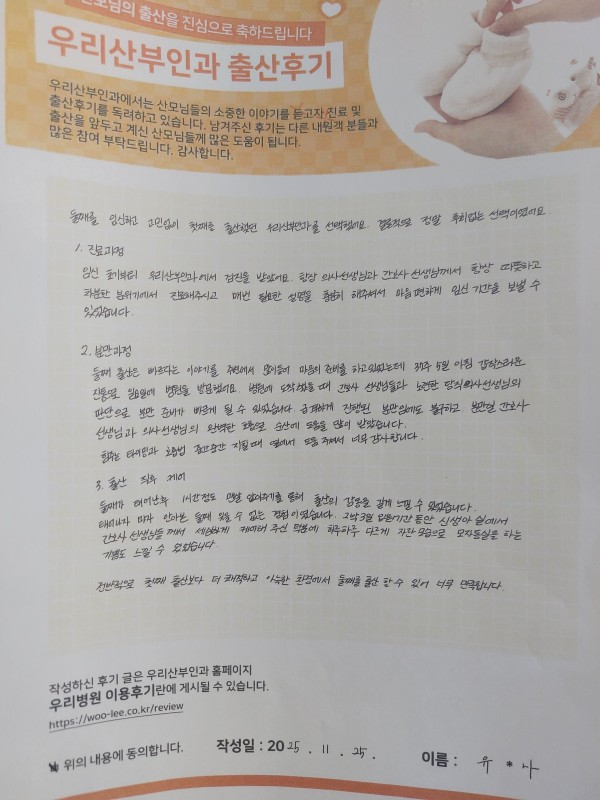 산모님의 출산을 진심으로 축하드립니다
우리산부인과 출산후기
우리산부인과에서는 산모님들의 소중한 이야기를 듣고자 진료 및
출산후기를 독려하고 있습니다. 남겨주신 후기는 다른 내원객 분들과
출산을 앞두고 계신 산모님들께 많은 도움이 됩니다.
많은 참여 부탁드립니다. 감사합니다.
둘째를 임신하고 고민없이 첫째를 출산했던 우리산부인과를 선택했어요. 결론적으로 정말 후회없는 선택이었어요.
1. 진료과정
임신 초기부터 우리산부인과에서 검진을 받았어요. 항상 의사선생님과 간호사 선생님께서 항상 따뜻하고
차분한 분위기에서 진료해주시고 매번 필요한 설명을 충분히 해주셔서 마음 편하게 임신 기간을 보낼 수
있었습니다.
2. 분만과정
둘째 출산은 빠르다는 이야기를 주변에서 많이들어 마음의 준비를 하고있었는데 39주 5일 아침 갑작스러운
진통으로 일요일에 병원을 방문했어요. 병원에 도착했을 때 간호사 선생님들과 노련한 당직의사선생님의
판단으로 분만 준비가 빠르게 될 수 있었습니다. 급격하게 진행된 분만임에도 불구하고 분만실 간호사
선생님과 의사선생님의 완벽한 호흡으로 순산에 도움을 많이 받았습니다.
힘주는 타이밍과 호흡법 중간중간 지칠 때 옆에서 도움 주셔서 너무 감사합니다.
3. 출산 직후 케어
둘째가 태어난후 1시간정도 맨살 안아주기를 통해 출산의 감동을 깊게 느낄 수 있었습니다.
태어나자 마자 안아본 둘째 잊을 수 없는 경험이었습니다. 2박3일 입원기간 동안 신생아 실에서
간호사 선생님들 께서 세심하게 케어해 주신 덕분에 하루하루 다르게 자란 모습으로 모자동실을 하는
기쁨도 느낄 수 있었습니다.
전반적으로 첫째 출산보다 더 쾌적하고 아늑한 환경에서 둘째를 출산 할 수 있어 너무 만족합니다.
작성하신 후기 글은 우리산부인과 홈페이지
우리병원 이용후기란에 게시될 수 있습니다.
https://woo-lee.co.kr/review
위의 내용에 동의합니다. 작성일 : 2025 . 11 . 25 . 이름 : 유 * 나